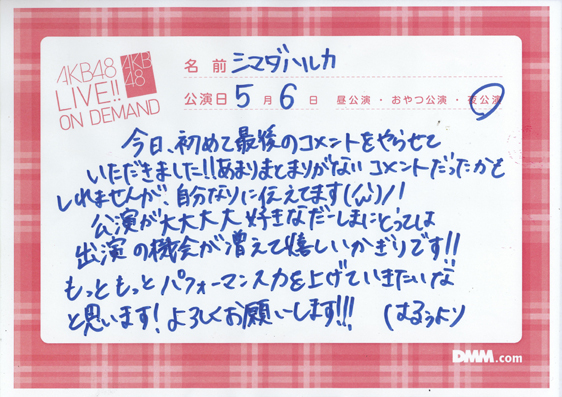 AKB48
LIVE!!
ON DEMAND
AKB
48
名 前 シマダハルカ
公演日 5 月 6 日 昼公演・おやつ公演・夜公演
今日、初めて最後のコメントをやらせて
いただきました!!あまりまとまりがないコメントだったかも
しれませんが、自分なりに伝えてます(^^)/!
公演が大大大大好きなだーしまにとっては
出演の機会が増えて嬉しいかぎりです!!
もっともっとパフォーマンス力を上げていきたいな
と思います!よろしくお願いします!!!
(はるぅより
DMM.com